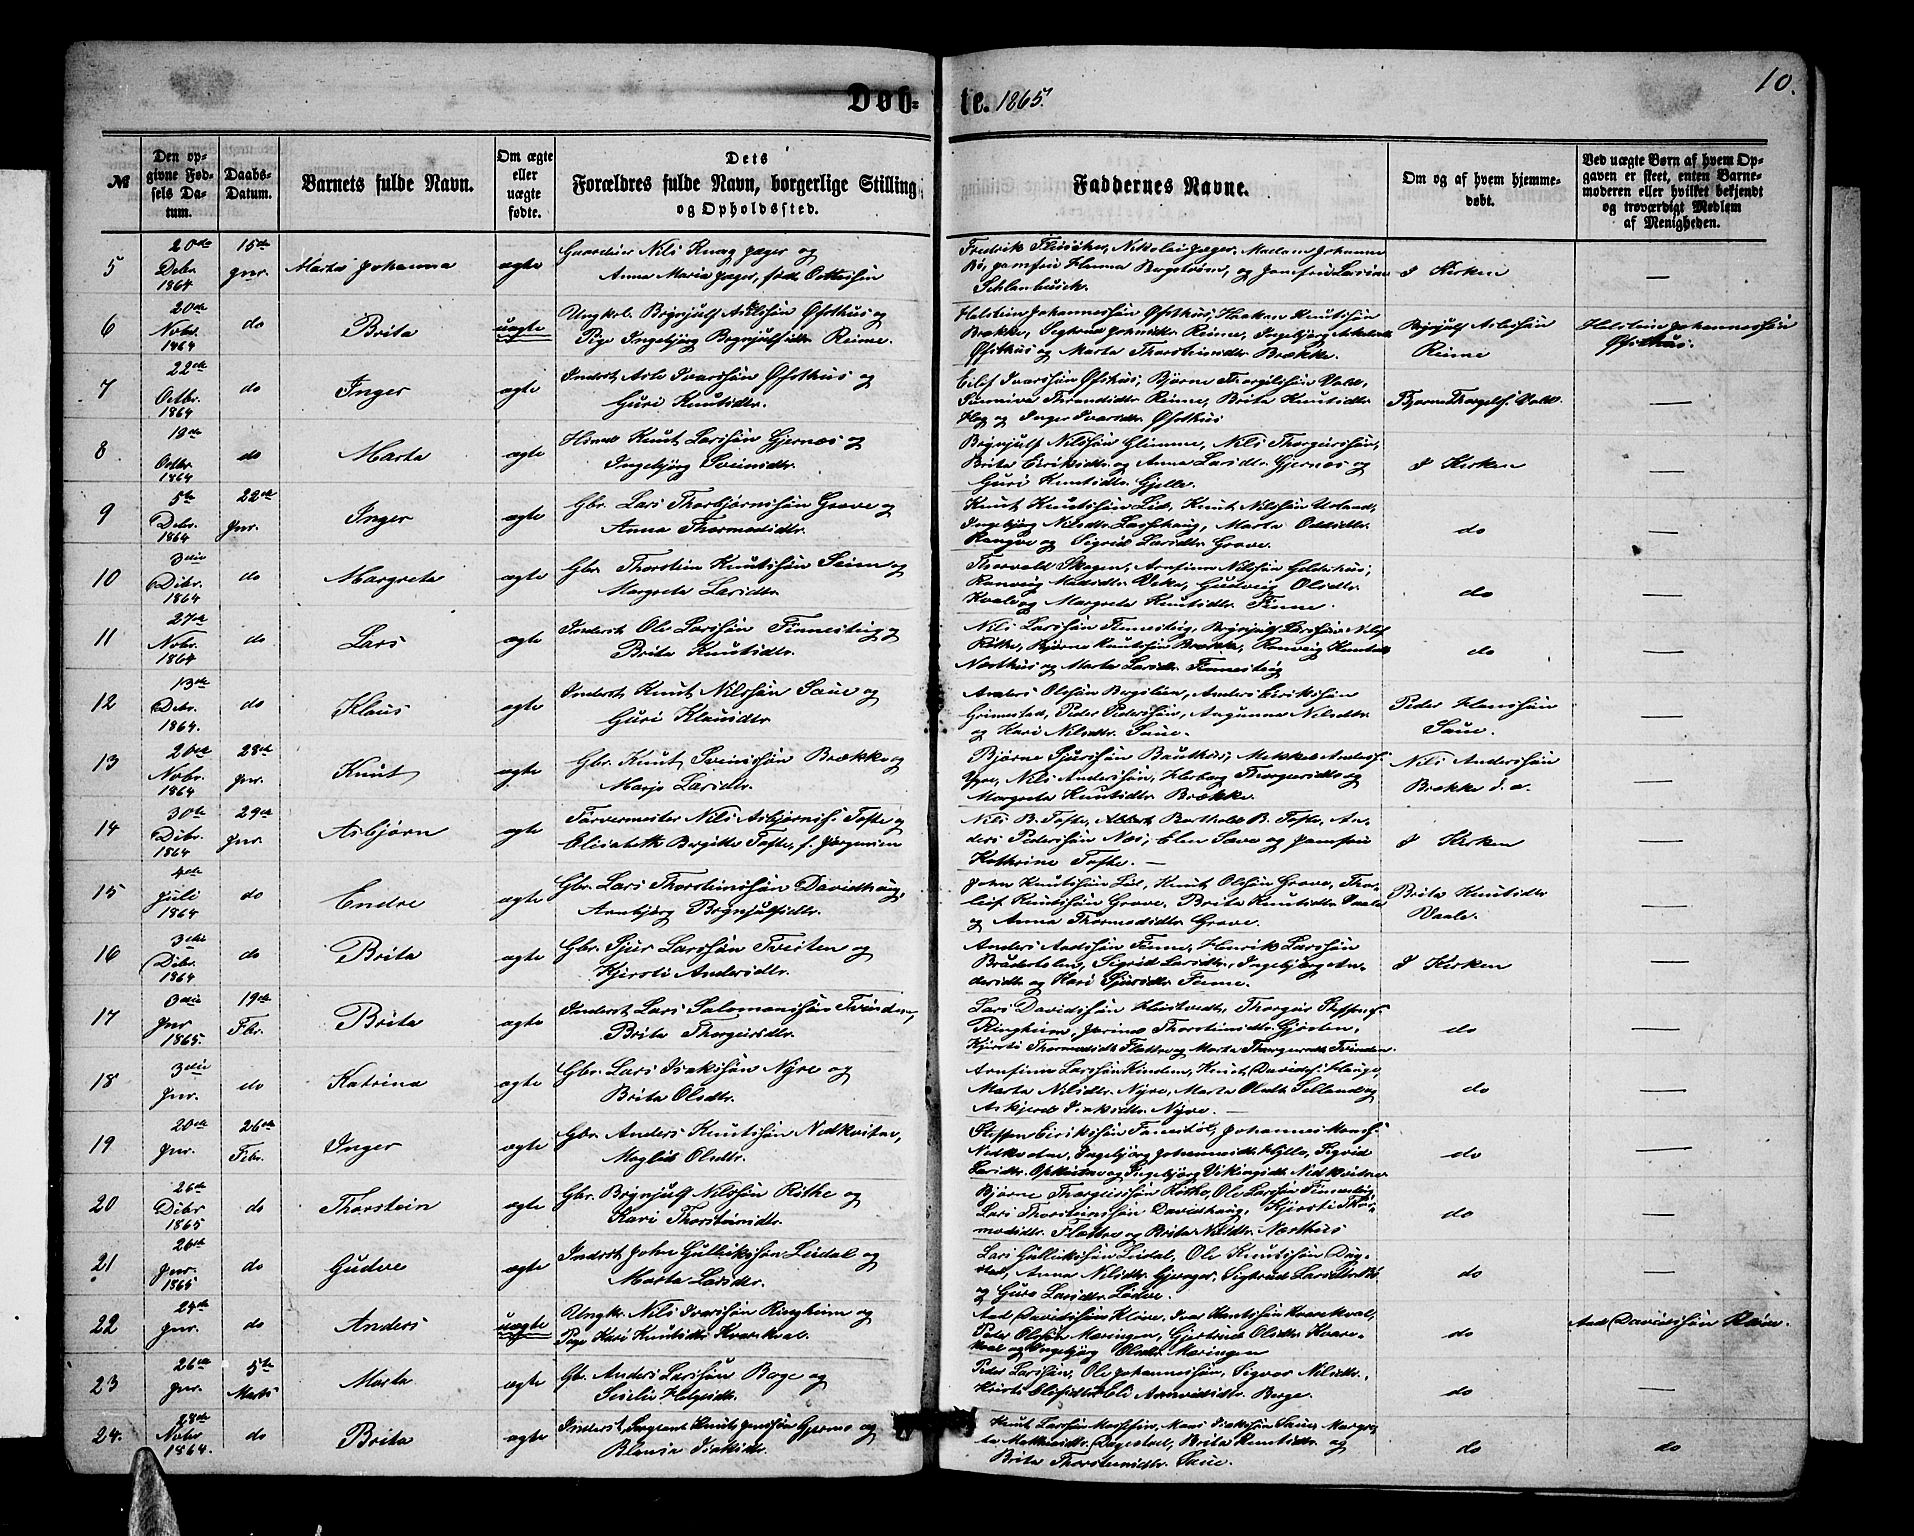 10.
Døb= te. 1865.
№
Den op=
givne Fød=
sels Da=
tum.
Daabs=
Datum.
Barnets fulde Navn.
Om ægte
eller
uægte
fødte.
Dets
Forældres fulde Navn, borgerlige Stilling
og Opholdssted.
Faddernes Navne.
Om og af hvem hjemme=
døbt.
Ved uægte Børn af hvem Op=
gaven er skeet, enten Barne=
moderen eller hvilket bekjendt
og troværdigt Medlem
af Menigheden.
5
20de
Debr.
1864
15de
Jnr.
Marta Johanna
ægte
Nils Knag Jæger og
Anna Maria Jæger, fød
Fredrik Fleischer, Nikolai Jæger, Madam Johanna
Bø, Jomfru Hanna Bergstrøm, og Jomfru Lovina
I Kirken
—
6
20de
Nobr.
1864
do
Brita
uægte
Ungkl. Brynjulf Aslesøn Øfsthus og
Pige Ingebjørg Brynjulfsdtr. Reime.
Holstein Johannessøn Øfsthus, Haaken Knutssøn
Brække, Sigtrud Johnsdtr. Reime, Ingebjørg
Øfsthus og Marta Thorsteinsdtr. Brække.
Brynjulf Aslessøn
Reime
Holstein Johannessøn
Øfsthus.
7
22de
Octbr.
1864
do
Inger
ægte
Inderst Asle Ivarssøn Øfsthus og
Guri Knutsdtr.
Eilef Ivarssøn Øfsthus, Bjørne Thorgilssøn Vold,
Sønnive Throndsdtr. Reime, Brita Knutsdtr.
og Inger Ivarsdtr. Øfsthus
Bjørne Thorgilss. Vold.
—
8
19de
Octbr.
1864
do
Marta
ægte
Knut Larssøn Gjernæs og
Ingebjørg Sveinsdtr.
Brynjulf Nilssøn Glimme, Nils Thorgeirssøn,
Brita Eiriksdtr. og Anna Larsdtr. Gjernæs og
Guri Knutsdtr. Gjelle.
I Kirken
—
9
5te
Debr.
1864
22de
Jnr.
Inger
ægte
Gbr. Lars Thorbjørnssøn Grove og
Anna Thormodsdtr.
Knut Knutssøn Lid, Knut Nilssøn Urland,
Ingebjørg Nilsdtr. Marta Oddsdtr.
Rongve og Sigrid Larsdtr. Grove.
do
—
10
3die
Debr.
1864
do
Margreta
ægte
Gbr. Thorstein Knutssøn Seim og
Margreta Larsdtr.
Thorvald Skogen, Arnfinn Nilssøn
Ranveig Madsdtr. Gudveig Olsdtr.
Kvale og Margreta Knutsdtr. Finne.
do
—
11
27de
Nobr.
1864
do
Lars
ægte
Inderst Ole Larssøn Finnesteig og
Brita Knutsdtr.
Nils Larssøn Finnesteig, Brynjulf Larssøn
Røthe, Bjørne Knutssøn Brække, Ranveig
Næsthus og Marta Larsdtr. Finnesteig
do
—
12
13de
Debr.
1864.
do
Klaus
ægte
Inderst Knut Nilssøn Saue og
Guri Klausdtr.
Anders Olssøn Bergslien, Anders Eirikssøn
Grimestad, Peder Pederssøn, Angunna Nilsdtr.
og Kari Nilsdtr. Saue.
Peder Hanssøn
Saue.
—
13
20de
Nobr.
1864
28de
Jnr.
Knut
ægte
Gbr. Knut Sveinssøn Brække og
Marjo Larsdtr.
Bjørne Sjurssøn Bauthus, Mikkel Anderss.
Nils Anderssøn, Herborg Thorgiersdtr. og
Margreta Knutsdtr. Brække.
Nils Anderssøn
Brække d. a.
—
14
30te
Debr.
1864
29de
Jnr.
Asbjørn
ægte
Farvermester Nils Asbjørnss. Tofte og
Elisabeth Birgitte Tofte, f. Jørgensen
Nils B. Tofte, Albert Barthold B. Tofte, An-
ders Pederssøn Næs, Elen Saue og Jomfru
Kathrine Tofte. —
I Kirken
—
15
4de
Juli
1864
do
Endre
ægte
Gbr. Lars Thorsteinssøn Davidhaug,
Arnbjørg Brynjulfsdtr.
John Knutssøn Lid, Knut Olssøn Grove, Tho-
leif Knutssøn Grove, Brita Knutsdtr.
og Anna Thormodsdtr. Grove.
Brita Knutsdtr.
—
16
3die
Debr.
1864
do
Brita
ægte
Gbr. Sjur Larssøn Tveiten og
Kjersti Andersdtr.
Anders Aadssøn Finne, Henrik Larssøn
Sigrid Larsdtr., Ingebjørg An-
dersdtr. og Kari Sjursdtr. Finne.
I Kirken
—
17
Jnr.
1865.
19de
Fbr.
Brita
ægte
Inderst Lars Salamonssøn Tvinden,
Brita Thorgiersdtr.
Lars Davidssøn Thorgier Steffens.
Ringheim, Thorsteinsdtr.
Kjersti Thormodsdtr. Flatte og Marta Thorgiersdtr. Tvinden.
do
—
18
3die
Jnr.
do
Katrina
ægte
Gbr. Lars Isakssøn Nyre og
Brita Olsdtr.
Arnfinn Larssøn Kinden, Knut Davids.
Marta Nilsdtr. Nyre, Marta Olsdtr. Selland og
Isaksdtr. Nyre. —
do
—
19
20de
Jnr.
26de
Febr.
Inger
ægte
Gbr. Anders Knutssøn Nedkvitne,
Magla Olsdtr.
Steffen Eirikssøn Johannes
Nedkvitne, Ingebjørg Johannesdtr. Sigrid
Larsdtr. og Ingebjørg Vikingsdtr. Nedkvitne
do
—
20
26de
Debr
1865
do
Thorstein
ægte
Gbr. Brynjulf Nilssøn Røthe og
Kari Thorsteinsdtr.
Bjørne Thorgierssøn Røthe, Ole Larssøn Finnesteig,
Lars Thorsteinssøn Davidhaug, Kjersti Thor-
modsdtr. Flatte og Brita Nilsdtr. Næsthus
do
—
21
26de
Jnr.
1865
do
Gudve
ægte
Inderst John Gullikssøn Leidal og
Marta Larsdtr.
Lars Gullikssøn Leidal, Ole Knutssøn Dag-
stad, Anna Nilsdtr. Gjerager, Sigtrud Larsdtr.
og Guro Larsdtr. Lødve.
do
—
22
24de
Jnr.
do
Anders
uægte
Ungkr. Nils Ivarssøn Ringheim og
Pige Kari Knutsdtr. Kvarekval.
Aad Davidssøn Kløve, Ivar Knutssøn Kvarekval,
Peder Olssøn Mæringen, Gjertrud Olsdtr. Kvare-
kval og Ingebjørg Olsdtr. Mæringen
do
Aad Davidssøn Kløve.
23
26de
Jnr.
5te
Marts
Marta
ægte
Gbr. Anders Larssøn Boge og
Sesilie Helgesdtr.
Peder Larssøn, Ole Johannessøn, Sigvor Nilsdtr.,
Kirsti Olsdtr. Eli Arnvedsdtr. Berge.
do
—
24.
28de
Nobr
1864.
do
Brita
ægte
Inderst, Sergeant Knut Jenssøn Gjernes og
Blansia Isaksdtr.
Knut Larssøn Mads Isakssøn Saue, Margre-
ta Dagestad, Brita Knutsdtr. og
Brita Thorsteinsdtr. Saue.
do
do